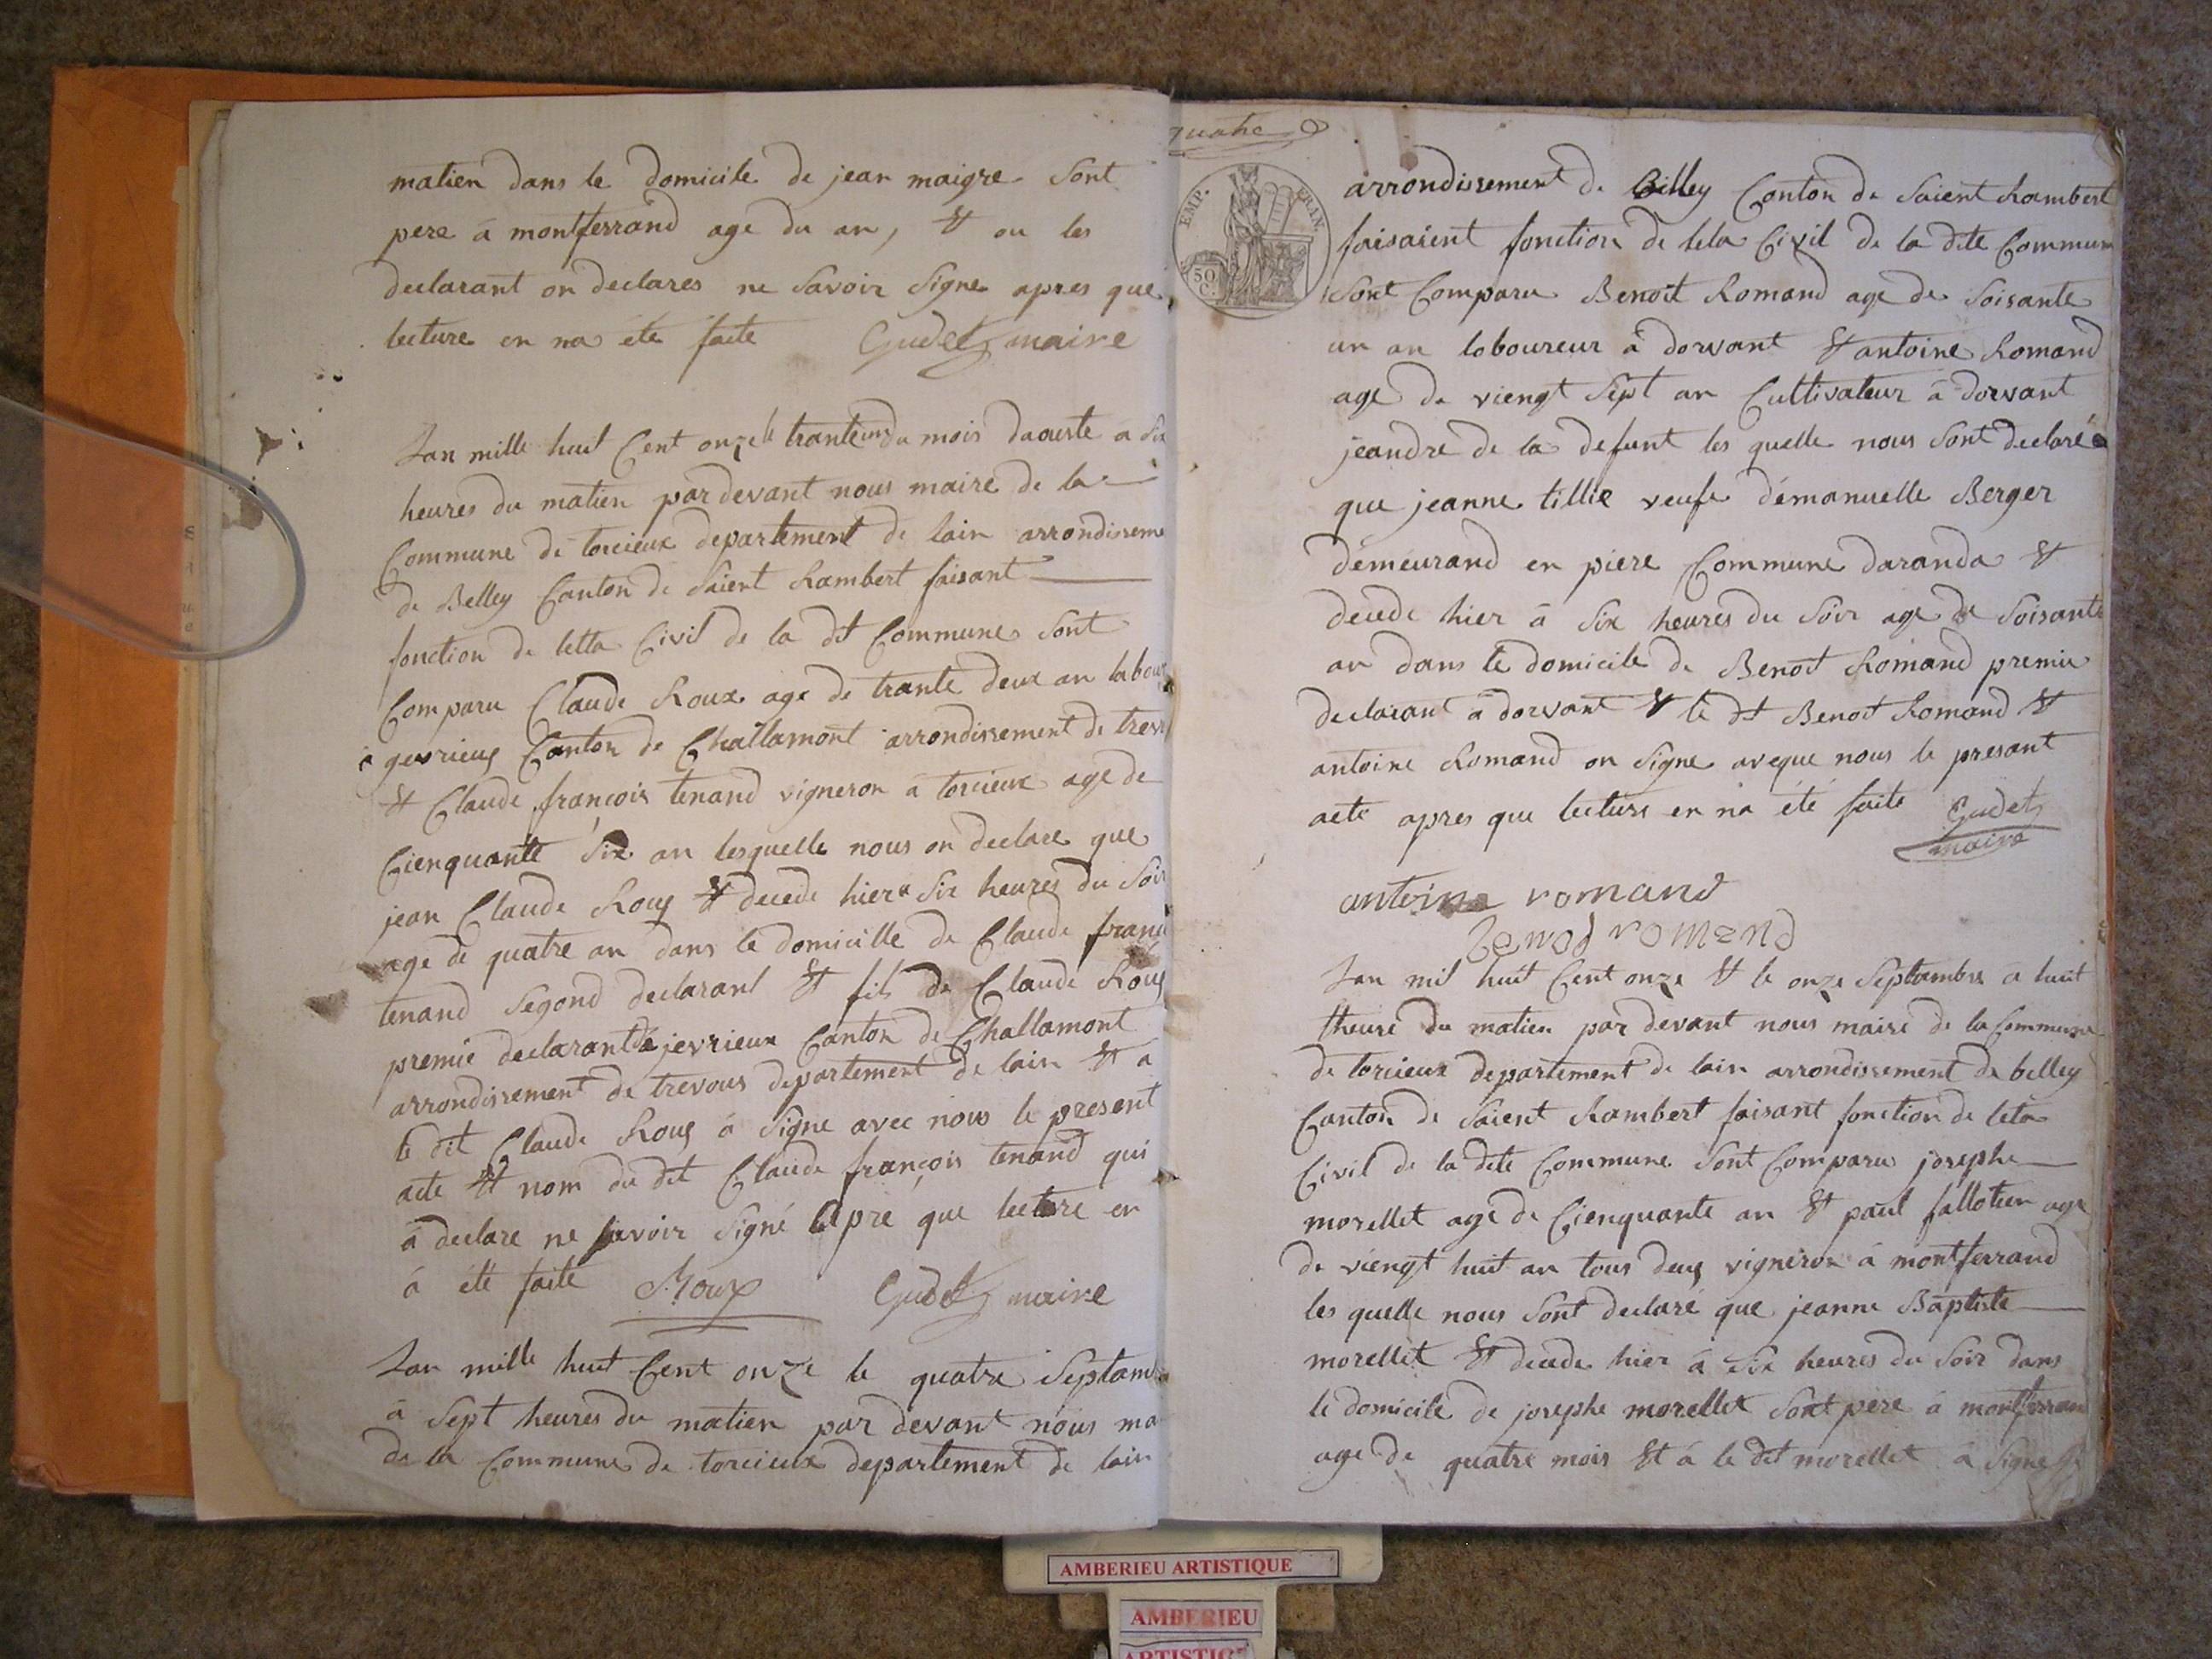 matien dans le domicile de jean maigre Sont
pere à montferrand age du an, & ou les
declarant on declares ne Savoir Signe apres que
lecture en na été faite Gudet maire
Lan mille huit Cent onze le trante un du mois daouste a Six
heures du matien par devant nous maire de la
Commune de torcieux departement de lain arrondisseme
de Belley Canton de Saient Rambert faisant
fonction de letta Civil de la dt Commune Sont
Comparu Claude Roux age de trante deux an labour
a gevrieux Canton de Challamont arrondissement de trev
& Claude françois tenand vigneron à torcieux age de
Cienquante Six an lesquelle nous on declare que
jean Claude Roux & decede hier a Six heures du Soir
age de quatre an dans le domicille de Claude franç
tenand Segond declarant & fils de Claude Roux
premie declarant à jevrieux Canton de Challamont
arrondissement de trevous departement de lain & à
le dit Claude Roux à Signe avec nous le present
acte & nom du dit Claude françois tenand qui
à declare ne savoir Signé apre que lecture en
à été faite Roux Gudet maire
Lan mille huit Cent onze le quatre Septamb
à Sept heures du matien par devant nous ma
de la Commune de torcieux departement de lain
quatre
EMP. FRAN.
50 C.
arrondissement de Billey Canton de Saient Rambert
faisaient fonction de leta Civil de la dite Commun
Sont Comparu Benoit Romand age de Soisante
un an laboureur à dorvant & antoine Romand
age de viengt Sept an Cultivateur à dorvant
jeandre de la defunt les quelle nous Sont declaré
que jeanne tillie veufe démanuelle Berger
démeurand en piere Commune daranda &
decede hier à Six heures du Soir age de Soisante
an dans le domicile de Benoit Romand premie
declarant à dorvant & le dt Benoit Romand &
antoine Romand on Signe aveque nous le presant
acte apres que lecture en na été faite Gudet
maire
antoine romand
benod romand
Lan mil huit Cent onze & le onze Septambre à huit
theure du matien par devant nous maire de la Commune
de torcieux departement de lain arrondissement de belley
Canton de Saient Rambert faisant fonction de leta
Civil de la dite Commune Sont Comparu josephe
morellet age de Cienquante an & paul fallotien age
de viengt huit an tous deux vigneron à montferrand
les quelle nous Sont declaré que jeanne Baptiste
morellet & decede hier à Six heures du Soir dans
le domicile de josephe morellet Sont pere à montferrand
age de quatre mois & à le dit morellet à Signe
AMBERIEU ARTISTIQUE
AMBERIEU
ARTISTIQ